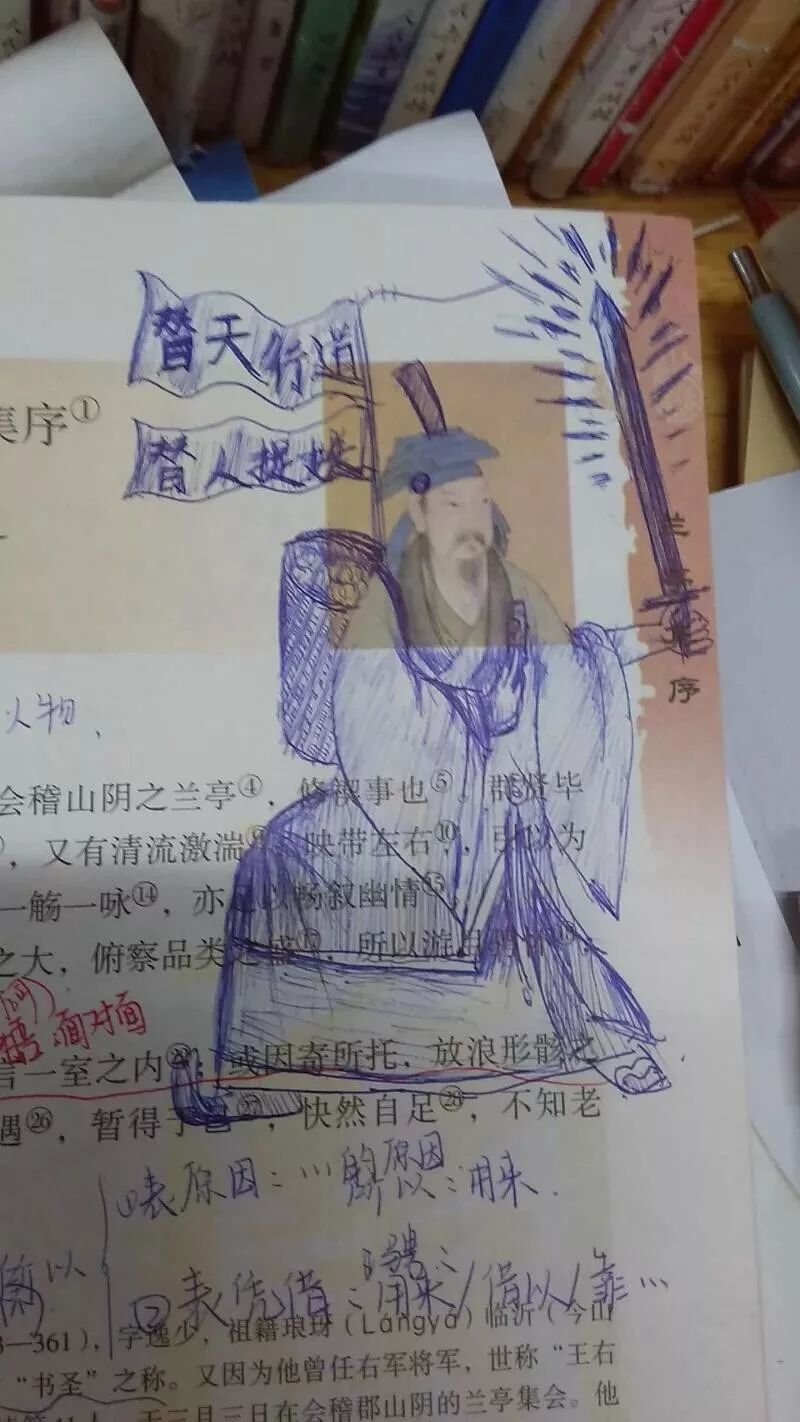 替天行道
集序①
替人捉妖
兰亭集序
人物、
会稽山阴之兰亭④，修禊事也⑤。群贤毕
，又有清流激湍⑨，映带左右⑩，引以为
一觞一咏⑭，亦足以畅叙幽情⑮。
之大，俯察品类之盛⑰，所以游目骋怀⑱，
面对面
言一室之内㉔；或因寄所托，放浪形骸之
遇㉖，暂得于己㉗，快然自足㉘，不知老
①表原因：…的原因
所以：用来.
所以
②表凭借：用来/借以/靠…
3—361)，字逸少，祖籍琅玡（Lángyá）临沂（今山
“书圣”之称。又因为他曾任右军将军，世称“王右
于三月三日在会稽郡山阴的兰亭集会。他